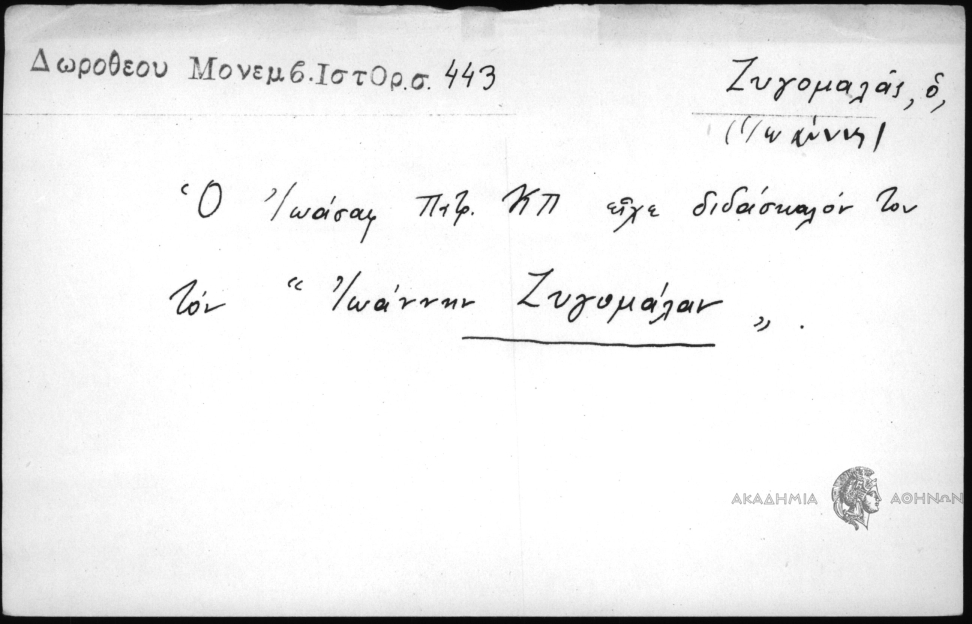 Δωροθεου Μονεμβ. Ιστορ. σ. 443
Ζυγομαλᾶς, ὁ,
(Ἰωάννης)
Ὁ Ἰωάσαφ Πτρ. ΚΠ εἶχε διδάσκαλόν του
τόν “ Ἰωάννην Ζυγομάλαν „ .
ΑΚΑΔΗΜΙΑ ΑΘΗΝΩΝ